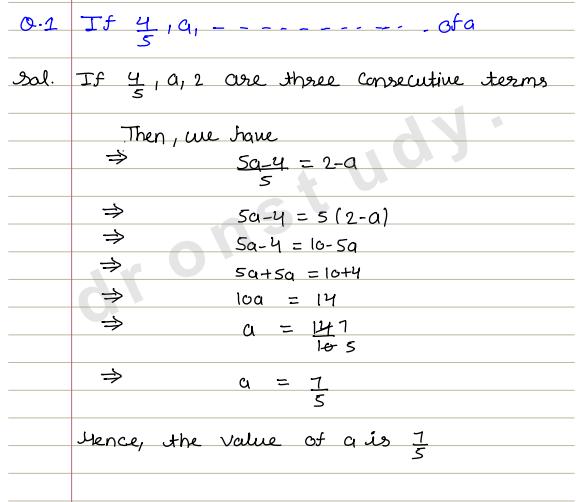 Q.1 If 4/5, a, - - - - - - - - - - - - . of a
Sol. If 4/5, a, 2 are three consecutive terms
Then, we have
⇒ 5a-4/5 = 2-a
⇒ 5a-4 = 5(2-a)
⇒ 5a-4 = 10-5a
⇒ 5a+5a = 10+4
⇒ 10a = 14
⇒ a = 14 7/10 5
⇒ a = 7/5
Hence, the value of a is 7/5
dronstudy.